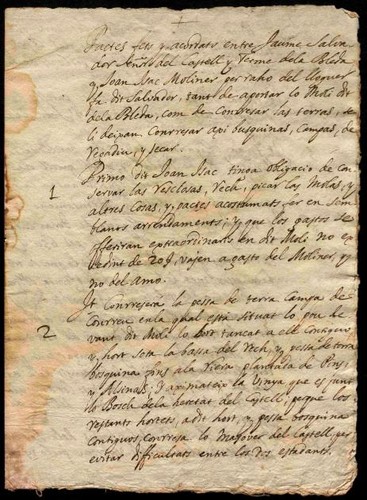 Pactes fets y acordats entre Jaume Salva
dor Señor del Castell y Terme de la Bleda
y Joan Isac Moliner per raho del lloguer
fa dit Salvador, tant de aportar lo Moli dit
de la Bleda, com de Conrresar las terras, se
li deixan Conrresar axi busquinas, Campas, de
Regadiu, y secar.
1 Primo dit Joan Isac tinga obligacio de con
servar las Resclosas, Rech, picar las Molas, y
altres Cosas, y pactes acostumats fer en sem
blants arrendaments; y que los gastos se
oferiran extraordinaris en dit Moli no ex
cedint de 20 vajen a gasto del Moliner, y
no del amo.
2 It Conrresera la pessa de terra Campa de
Conreu en la qual esta situat lo pou de
vant dit Moli lo hort tancat a ell Contiguo
y hort sota la bassa del Rech, y pessa de terra
bosquina fins ala Riera plantada de Pins
y Alsinas; Y animateix la Vinya que es junt
lo Bosch de la heretat del Castell; perque los
restants hortets, a dit hort, y pessa bosquina
Contiguos, Conrresa lo Masover del Castell, per
evitar dificultats entre los dos estadants.